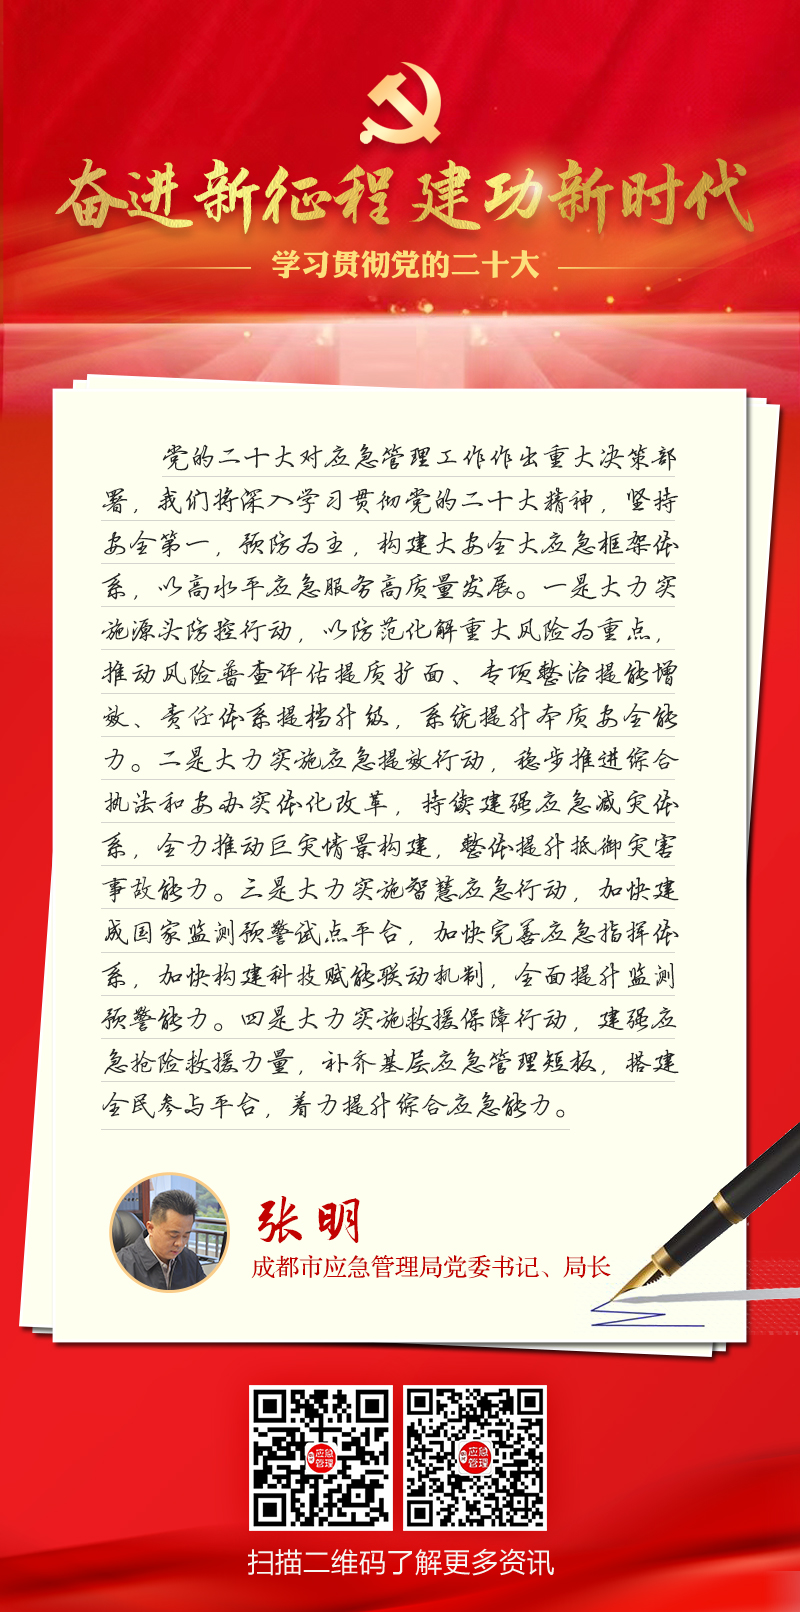 奋进新征程 建功新时代
学习贯彻党的二十大
党的二十大对应急管理工作作出重大决策部
署，我们将深入学习贯彻党的二十大精神，坚持
安全第一，预防为主，构建大安全大应急框架体
系，以高水平应急服务高质量发展。一是大力实
施源头防控行动，以防范化解重大风险为重点，
推动风险普查评估提质扩面、专项整治提能增
效、责任体系提档升级，系统提升本质安全能
力。二是大力实施应急提效行动，稳步推进综合
执法和安办实体化改革，持续建强应急减灾体
系，全力推动巨灾情景构建，整体提升抵御灾害
事故能力。三是大力实施智慧应急行动，加快建
成国家监测预警试点平台，加快完善应急指挥体
系，加快构建科技赋能联动机制，全面提升监测
预警能力。四是大力实施救援保障行动，建强应
急抢险救援力量，补齐基层应急管理短板，搭建
全民参与平台，着力提升综合应急能力。
张明
成都市应急管理局党委书记、局长
应急
管理
应急
管理
扫描二维码了解更多资讯